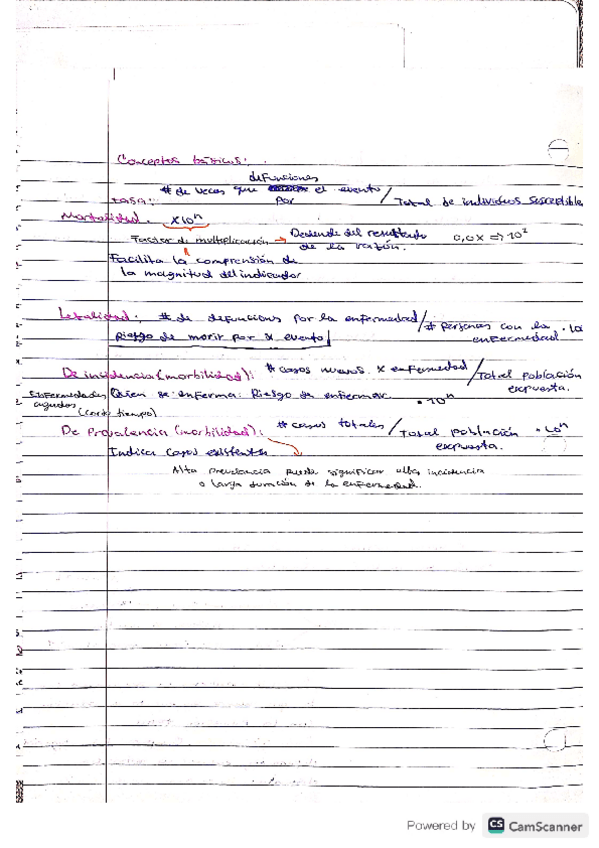 Conceptos básicos:
defunciones
# de veces que el evento / Total de individuos susceptible
tasa: por
Mortalidad. x10ⁿ
Factor de multiplicación → Depende del resultado 0,0x => 10²
de la razón.
Facilita la comprensión de
la magnitud del indicador
Letalidad: # de defunciones por la enfermedad / # Personas con la · 10
enfermedad
Riesgo de morir por x evento
De incidencia (morbilidad): # casos nuevos x enfermedad / Total población
expuesta.
Enfermedades Quien se enferma: Riesgo de enfermar. · 10ⁿ
agudas (corto tiempo)
De Prevalencia (morbilidad): # casos totales / Total población · 10ⁿ
expuesta.
Indica casos existentes
Alta prevalencia puede significar alta incidencia
o larga duración de la enfermedad.
Powered by CS CamScanner